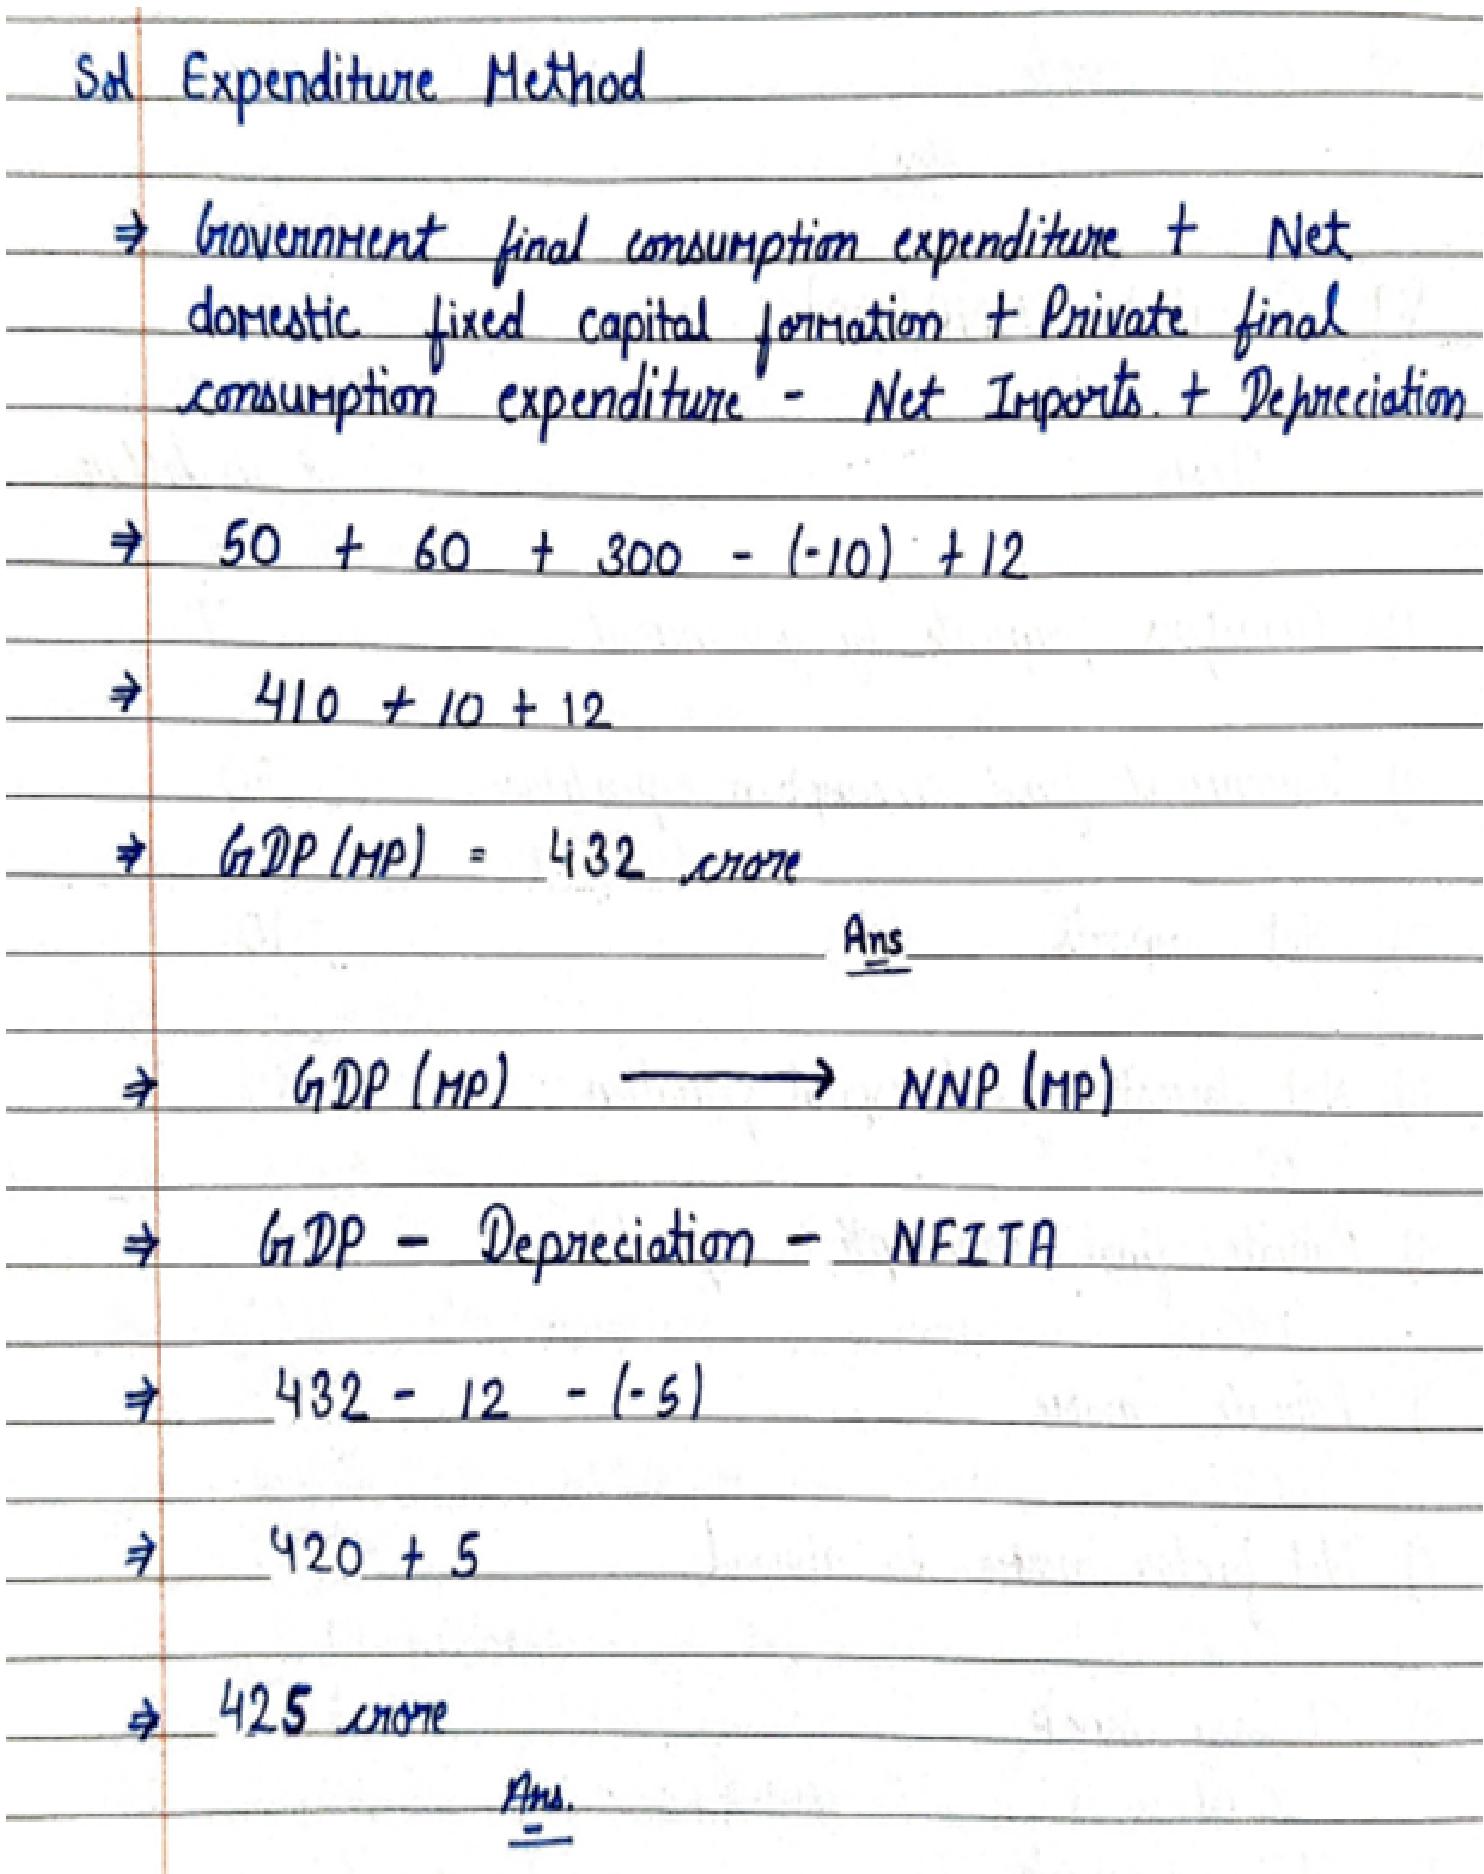 Sol Expenditure Method
⇒ Government final consumption expenditure + Net
domestic fixed capital formation + Private final
consumption expenditure - Net Imports. + Depreciation
⇒ 50 + 60 + 300 - (-10) + 12
⇒ 410 + 10 + 12
⇒ GDP (MP) = 432 crore
Ans
⇒ GDP (MP) ⟶ NNP (MP)
⇒ GDP - Depreciation - NFITA
⇒ 432 - 12 - (-5)
⇒ 420 + 5
⇒ 425 crore
Ans.